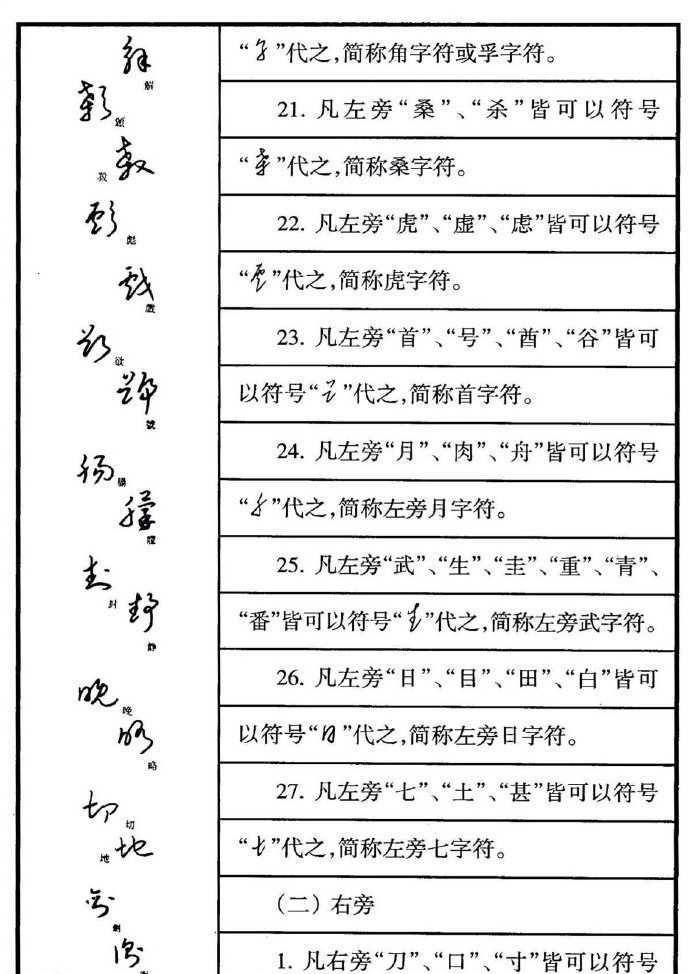 解
彪
戲
欲
號
封
静
晚
略
切
地
“ ”代之,简称角字符或孚字符。
21. 凡左旁“桑”、“杀”皆可以符号
“ ”代之,简称桑字符。
22. 凡左旁“虎”、“虚”、“虑”皆可以符号
“ ”代之,简称虎字符。
23. 凡左旁“首”、“号”、“酋”、“谷”皆可
以符号“ ”代之,简称首字符。
24. 凡左旁“月”、“肉”、“舟”皆可以符号
“ ”代之,简称左旁月字符。
25. 凡左旁“武”、“生”、“圭”、“重”、“青”、
“番”皆可以符号“ ”代之,简称左旁武字符。
26. 凡左旁“日”、“目”、“田”、“白”皆可
以符号“ ”代之,简称左旁日字符。
27. 凡左旁“七”、“土”、“甚”皆可以符号
“ ”代之,简称左旁七字符。
(二) 右旁
1. 凡右旁“刀”、“口”、“寸”皆可以符号